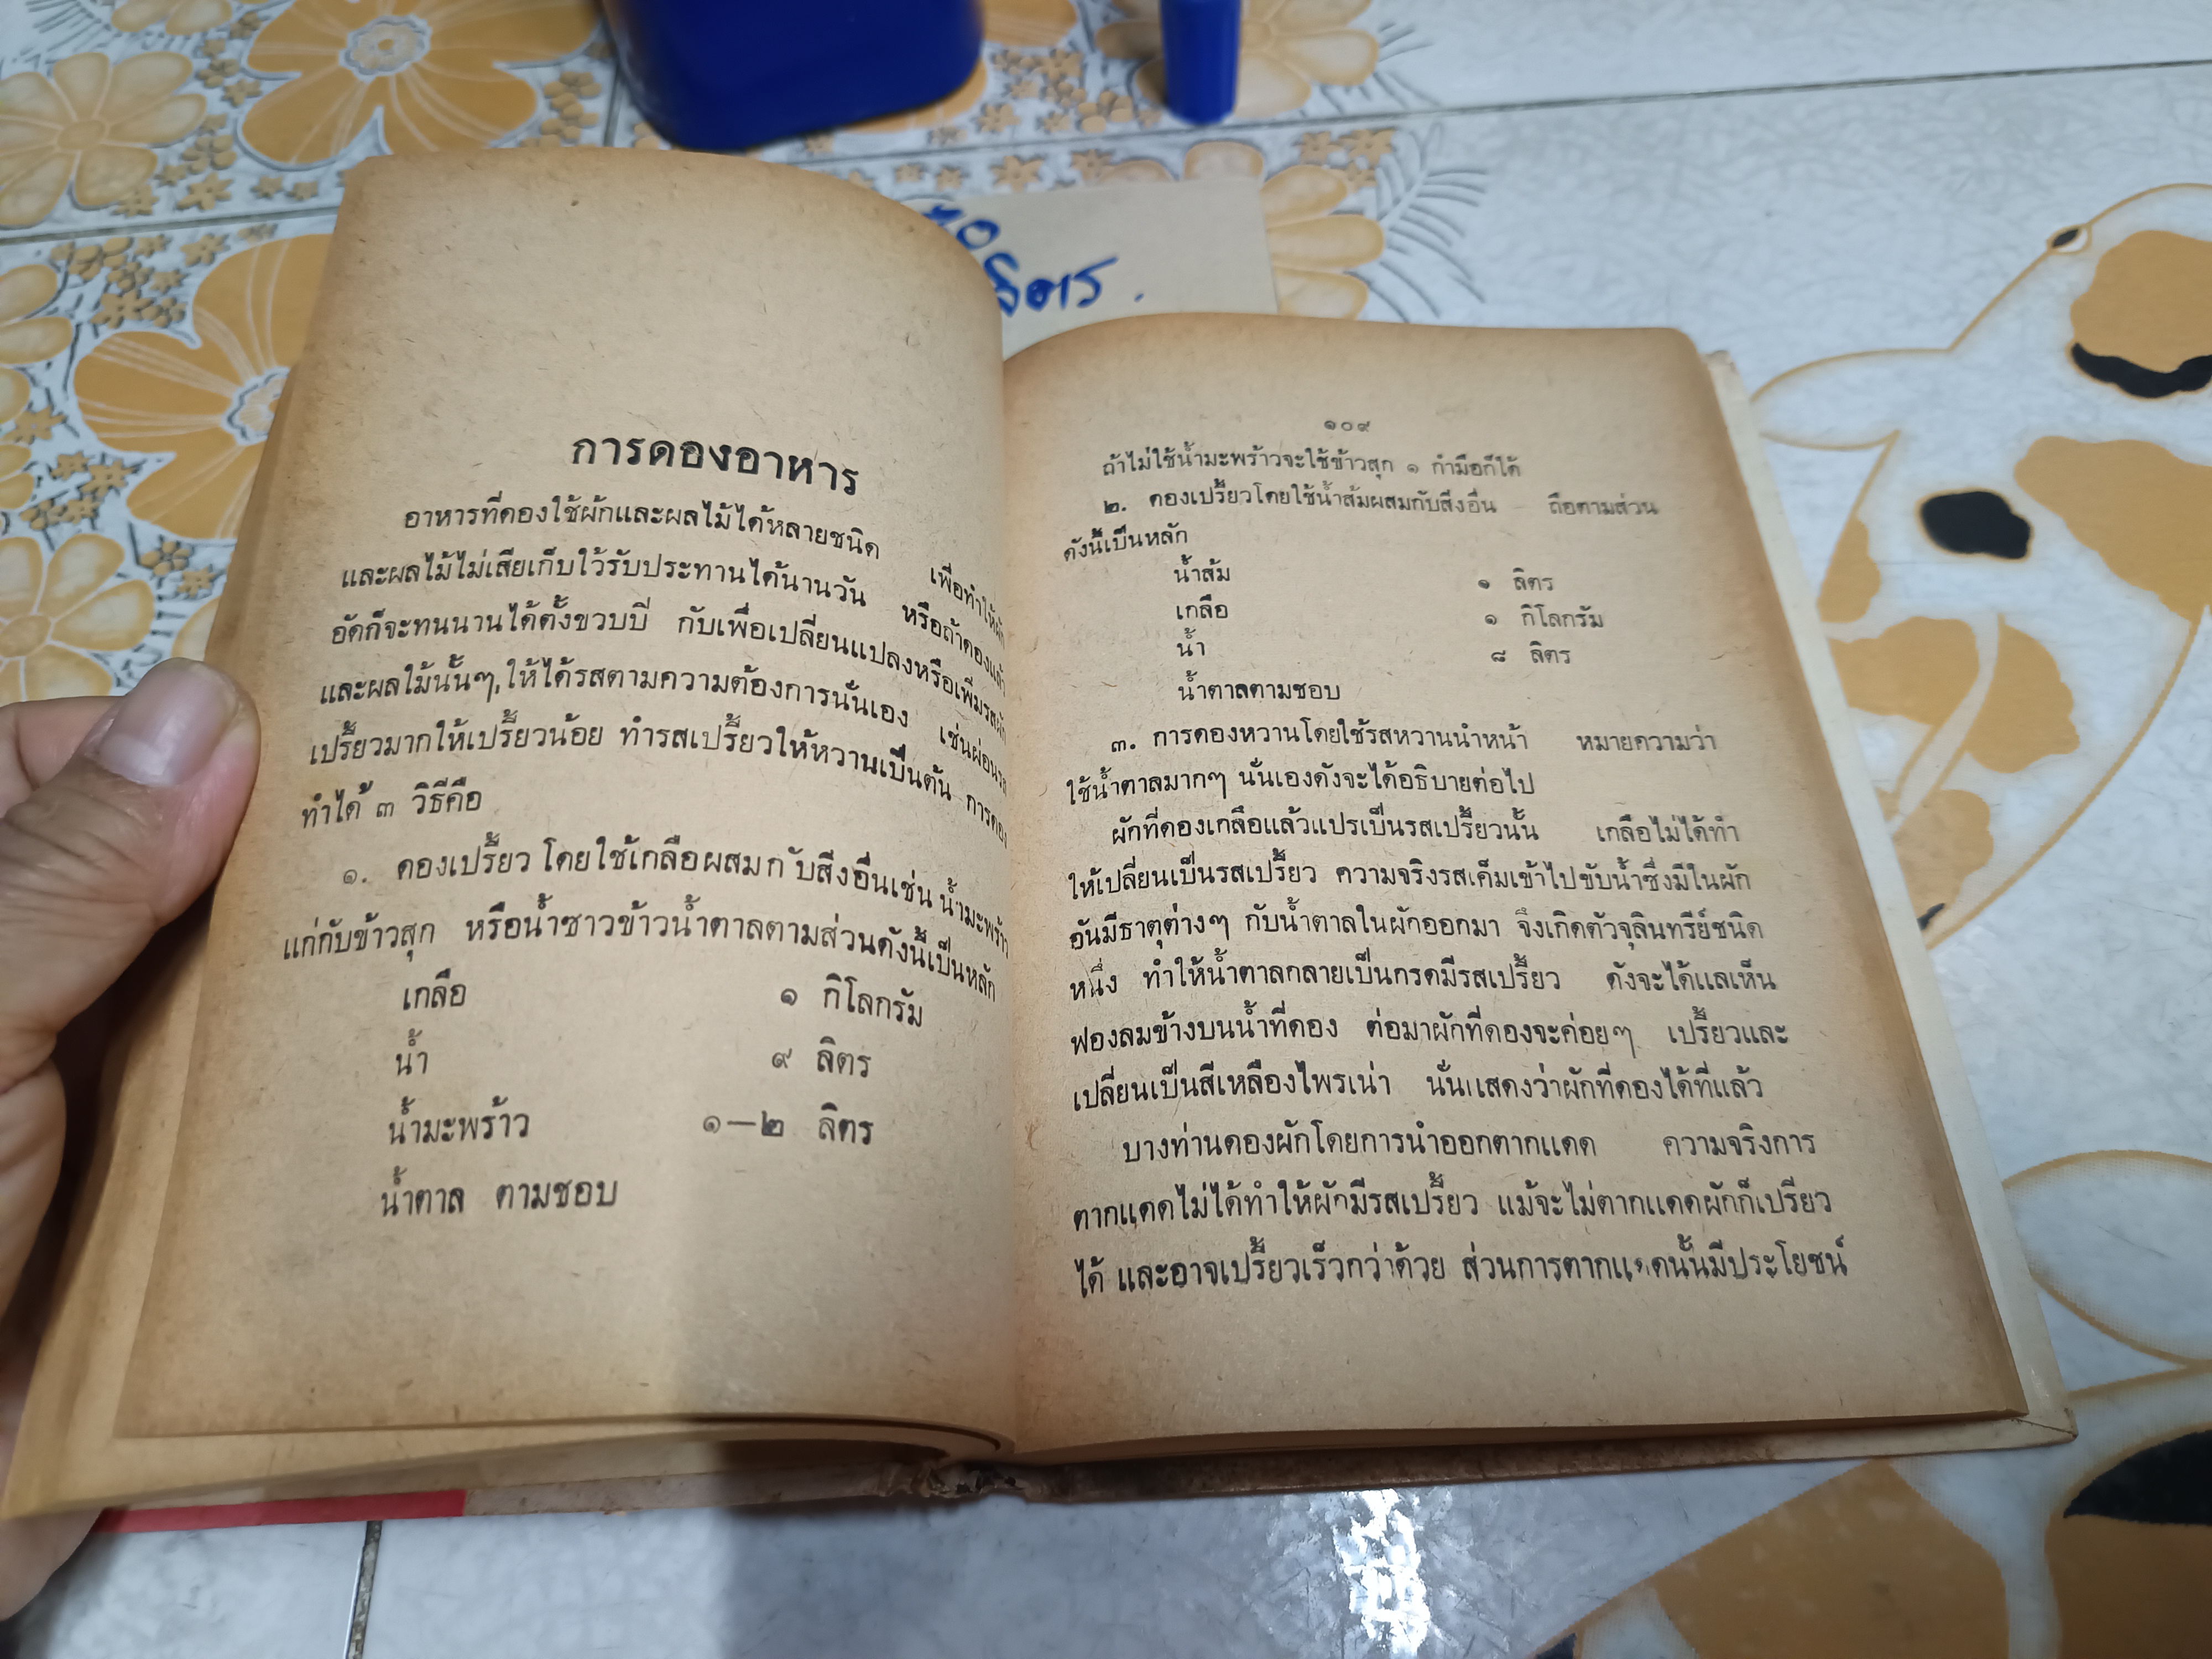 การดองอาหาร
อาหารที่ดองใช้ผักและผลไม้ได้หลายชนิด เพื่อทำให้ผัก
และผลไม้ไม่เสียเก็บใว้รับประทานได้นานวัน หรือถ้าดองแล้ว
อัดก็จะทนนานได้ตั้งขวบปี กับเพื่อเปลี่ยนแปลงหรือเพิ่มรสผัก
และผลใม้นั้นๆ,ให้ได้รสตามความต้องการนั่นเอง เช่นผ่อนรส
เปรี้ยวมากให้เปรี้ยวน้อย ทำรสเปรี้ยวให้หวานเป็นต้น การดอง
ทำได้ ๓ วิธีคือ
๑. ดองเปรี้ยว โดยใช้เกลือผสมกับสิ่งอื่นเช่น น้ำมะพร้าว
แก่กับข้าวสุก หรือน้ำซาวข้าวน้ำตาลตามส่วนดังนี้เป็นหลัก
เกลือ ๑ กิโลกรัม
น้ำ ๙ ลิตร
น้ำมะพร้าว ๑—๒ ลิตร
น้ำตาล ตามชอบ
๑๐๙
ถ้าไม่ใช้น้ำมะพร้าวจะใช้ข้าวสุก ๑ กำมือก็ได้
๒. ดองเปรี้ยวโดยใช้น้ำส้มผสมกับสิ่งอื่น ถือตามส่วน
ดังนี้เป็นหลัก
น้ำส้ม ๑ ลิตร
เกลือ ๑ กิโลกรัม
น้ำ ๘ ลิตร
น้ำตาลตามชอบ
๓. การดองหวานโดยใช้รสหวานนำหน้า หมายความว่า
ใช้น้ำตาลมากๆ นั่นเองดังจะได้อธิบายต่อไป
ผักที่ดองเกลือแล้วแปรเป็นรสเปรี้ยวนั้น เกลือไม่ได้ทำ
ให้เปลี่ยนเป็นรสเปรี้ยว ความจริงรสเค็มเข้าไปขับน้ำซึ่งมีในผัก
อันมีธาตุต่างๆ กับน้ำตาลในผักออกมา จึงเกิดตัวจุลินทรีย์ชนิด
หนึ่ง ทำให้น้ำตาลกลายเป็นกรดมีรสเปรี้ยว ดังจะได้แลเห็น
ฟองลมข้างบนน้ำที่ดอง ต่อมาผักที่ดองจะค่อยๆ เปรี้ยวและ
เปลี่ยนเป็นสีเหลืองไพรเน่า นั่นแสดงว่าผักที่ดองได้ที่แล้ว
บางท่านดองผักโดยการนำออกตากแดด ความจริงการ
ตากแดดไม่ได้ทำให้ผักมีรสเปรี้ยว แม้จะไม่ตากแดดผักก็เปรียว
ได้ และอาจเปรี้ยวเร็วกว่าด้วย ส่วนการตากแดดนั้นมีประโยชน์